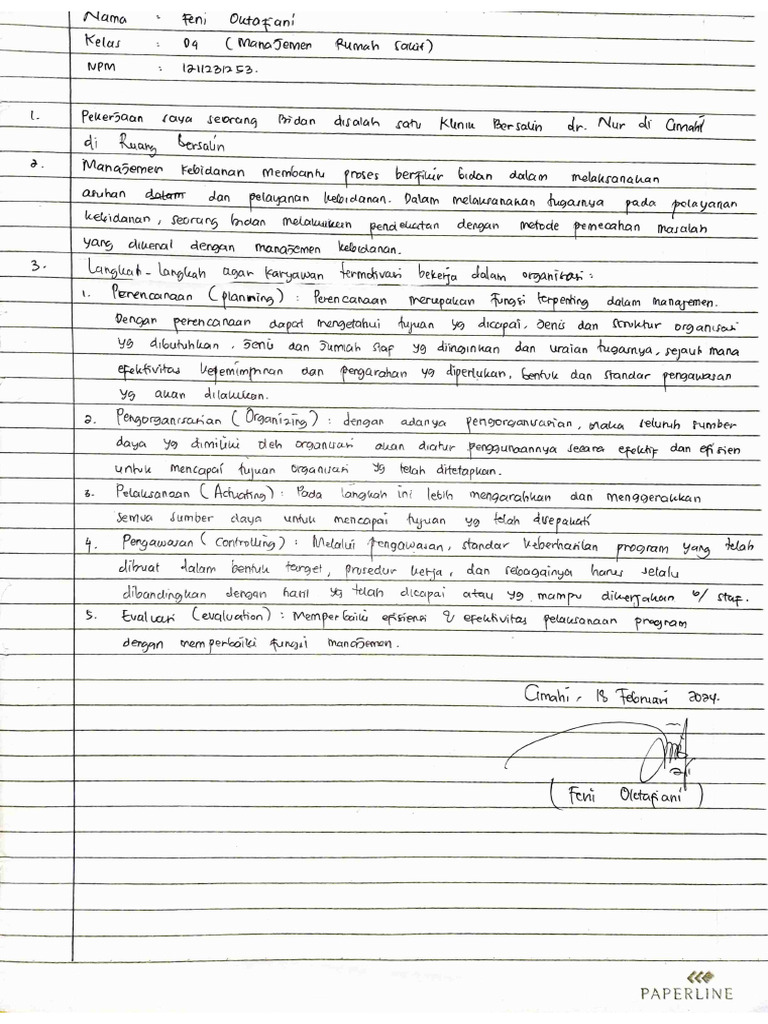 Nama : Feni Oktafiani
Kelas : D9 (Manajemen Rumah Sakit)
NPM : 1211231253.
1. Pekerjaan saya seorang Bidan disalah satu Klinik Bersalin dr. Nur di Cimahi
di Ruang Bersalin
2. Manajemen kebidanan membantu proses berfikir bidan dalam melaksanakan
asuhan dalam dan pelayanan kebidanan. Dalam melaksanakan tugasnya pada pelayanan
kebidanan, seorang bidan melakukan pendekatan dengan metode pemecahan masalah
yang dikenal dengan manajemen kebidanan.
3. Langkah-langkah agar karyawan termotivasi bekerja dalam organisasi :
1. Perencanaan (planning) : Perencanaan merupakan fungsi terpenting dalam manajemen.
Dengan perencanaan dapat mengetahui tujuan yg dicapai, Jenis dan struktur organisasi
yg dibutuhkan, Jenis dan Jumlah staf yg diinginkan dan uraian tugasnya, sejauh mana
efektivitas kepemimpinan dan pengarahan yg diperlukan, bentuk dan standar pengawasan
yg akan dilakukan.
2. Pengorganisasian (Organizing) : dengan adanya pengorganisasian, maka seluruh sumber
daya yg dimiliki oleh organisasi akan diatur penggunaannya secara efektif dan efisien
untuk mencapai tujuan organisasi yg telah ditetapkan.
3. Pelaksanaan (Actuating) : Pada langkah ini lebih mengarahkan dan menggerakkan
semua sumber daya untuk mencapai tujuan yg telah disepakati
4. Pengawasan (Controlling) : Melalui pengawasan, standar keberhasilan program yang telah
dibuat dalam bentuk target, prosedur kerja, dan sebagainya harus selalu
dibandingkan dengan hasil yg telah dicapai atau yg mampu dikerjakan o/ staf.
5. Evaluasi (evaluation) : Memperbaiki efisiensi & efektivitas pelaksanaan program
dengan memperbaiki fungsi manajemen.
Cimahi, 18 Februari 2024.
(Feni Oktafiani)
PAPERLINE